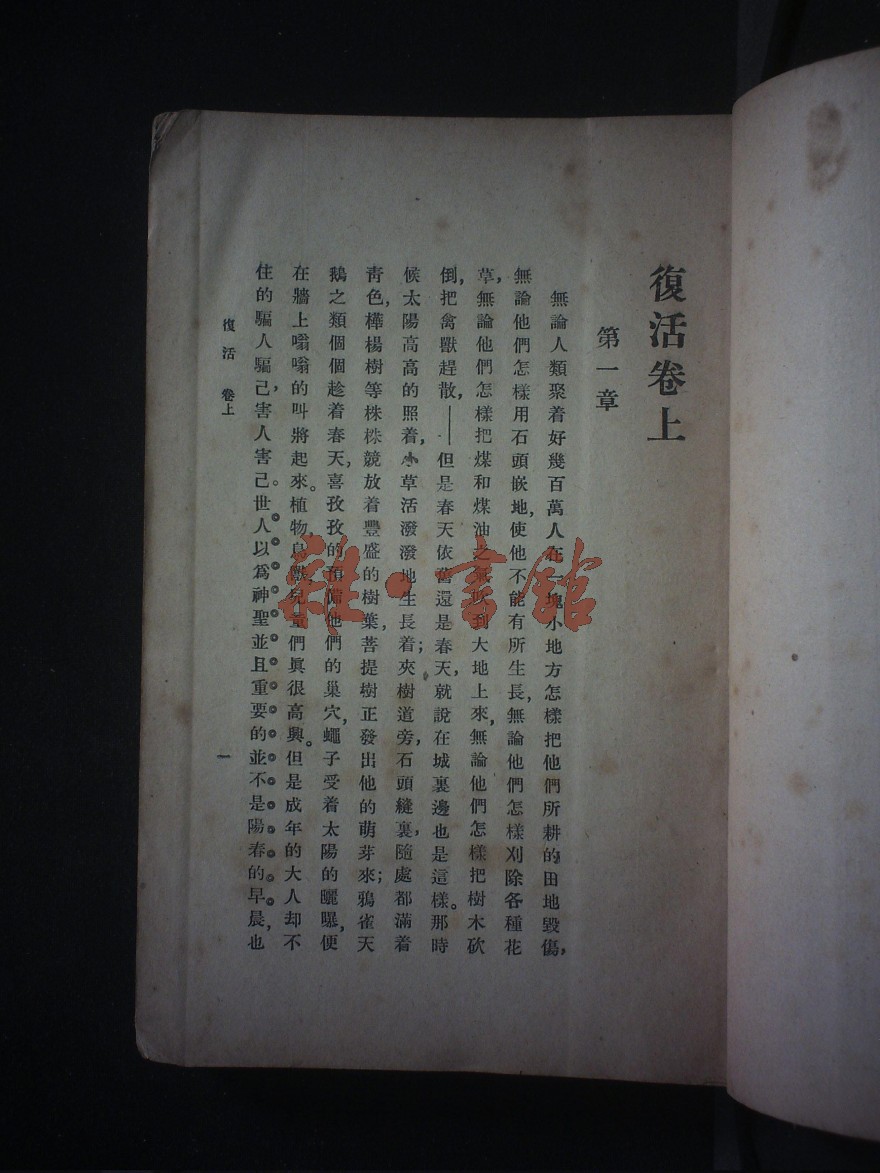 復活卷上
第一章
無論人類聚着好幾百萬人在一塊小地方怎樣把他們所耕的田地毀傷，
無論他們怎樣用石頭嵌地，使他不能有所生長，無論他們怎樣刈除各種花
草，無論他們怎樣把煤和煤油之氣吹到大地上來，無論他們怎樣把樹木砍
倒，把禽獸趕散，——但是春天依舊還是春天，就說在城裏邊也是這樣。那時
候太陽高高的照着，小草活潑潑地生長着；夾樹道旁，石頭縫裏，隨處都滿着
靑色，樺楊樹等株株競放着豐盛的樹葉，菩提樹正發出他的萌芽來；鴉雀天
鵝之類個個趁着春天，喜孜孜的預備他們的巢穴，蠅子受着太陽的曬曝，便
在牆上嗡嗡的叫將起來。植物，鳥獸，兒童們眞很高興。但是成年的大人却不
住的騙人騙己，害人害己。世人以爲神聖並且重要的並不是陽春的早晨，也
復活 卷上
一
雜·書館